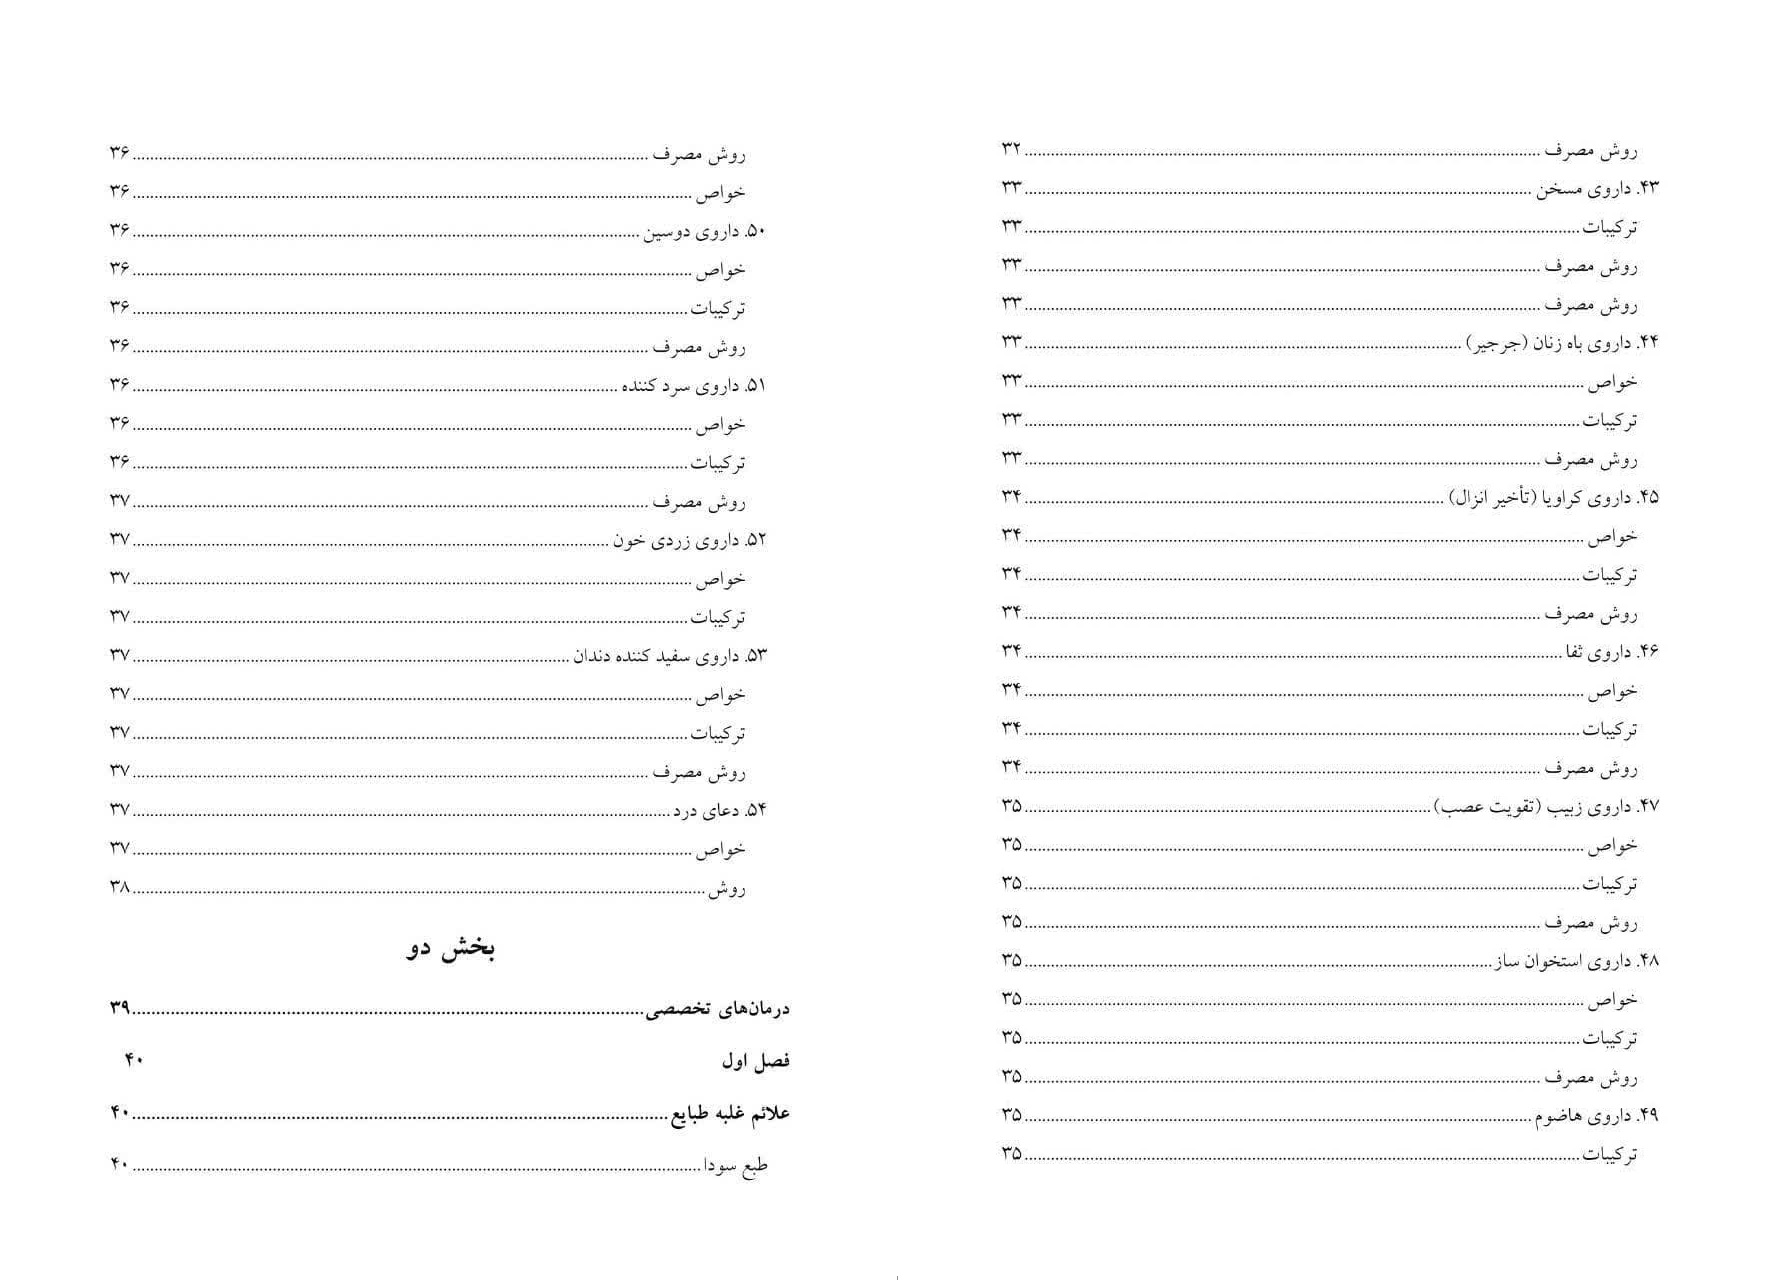 روش مصرف ... ۳۲
۴۳. داروی مسخن ... ۳۳
ترکیبات ... ۳۳
روش مصرف ... ۳۳
روش مصرف ... ۳۳
۴۴. داروی باه زنان (جرجیر) ... ۳۳
خواص ... ۳۳
ترکیبات ... ۳۳
روش مصرف ... ۳۳
۴۵. داروی کراویا (تأخیر انزال) ... ۳۴
خواص ... ۳۴
ترکیبات ... ۳۴
روش مصرف ... ۳۴
۴۶. داروی ثفا ... ۳۴
خواص ... ۳۴
ترکیبات ... ۳۴
روش مصرف ... ۳۴
۴۷. داروی زبیب (تقویت عصب) ... ۳۵
خواص ... ۳۵
ترکیبات ... ۳۵
روش مصرف ... ۳۵
۴۸. داروی استخوان ساز ... ۳۵
خواص ... ۳۵
ترکیبات ... ۳۵
روش مصرف ... ۳۵
۴۹. داروی هاضوم ... ۳۵
ترکیبات ... ۳۵
روش مصرف ... ۳۶
خواص ... ۳۶
۵۰. داروی دوسین ... ۳۶
خواص ... ۳۶
ترکیبات ... ۳۶
روش مصرف ... ۳۶
۵۱. داروی سرد کننده ... ۳۶
خواص ... ۳۶
ترکیبات ... ۳۶
روش مصرف ... ۳۷
۵۲. داروی زردی خون ... ۳۷
خواص ... ۳۷
ترکیبات ... ۳۷
۵۳. داروی سفید کننده دندان ... ۳۷
خواص ... ۳۷
ترکیبات ... ۳۷
روش مصرف ... ۳۷
۵۴. دعای درد ... ۳۷
خواص ... ۳۷
روش ... ۳۸
بخش دو
درمان‌های تخصصی ... ۳۹
فصل اول ۴۰
علائم غلبه طبایع ... ۴۰
طبع سودا ... ۴۰